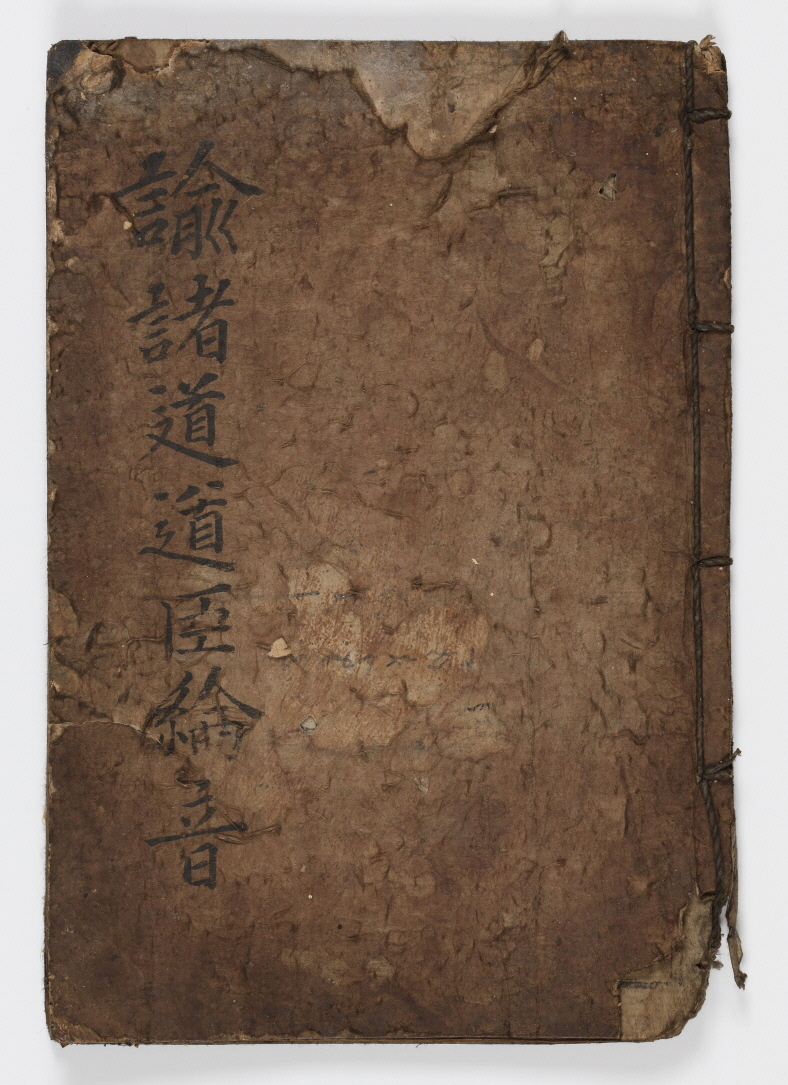 諭諸道道臣綸音